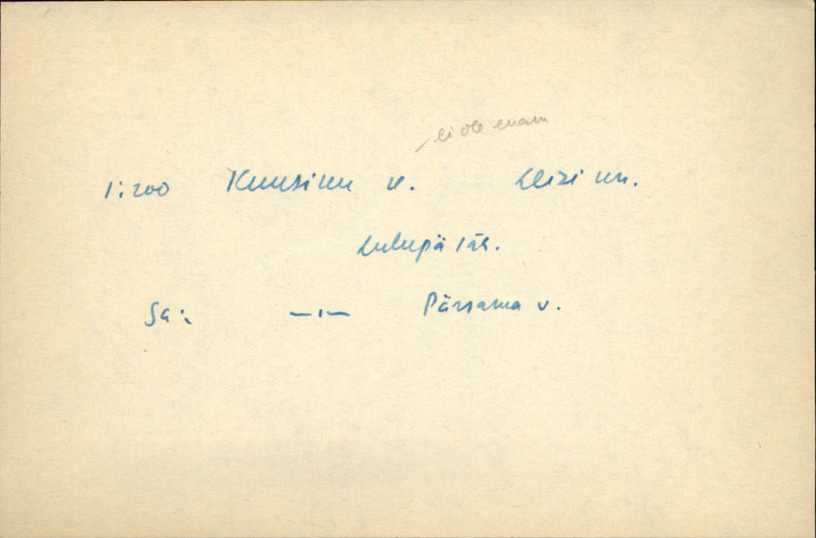 ei ole enam
1:200 Kuusiku v. Leisi un.
Lulupä täk.
Sa: —"— Pärsama v.